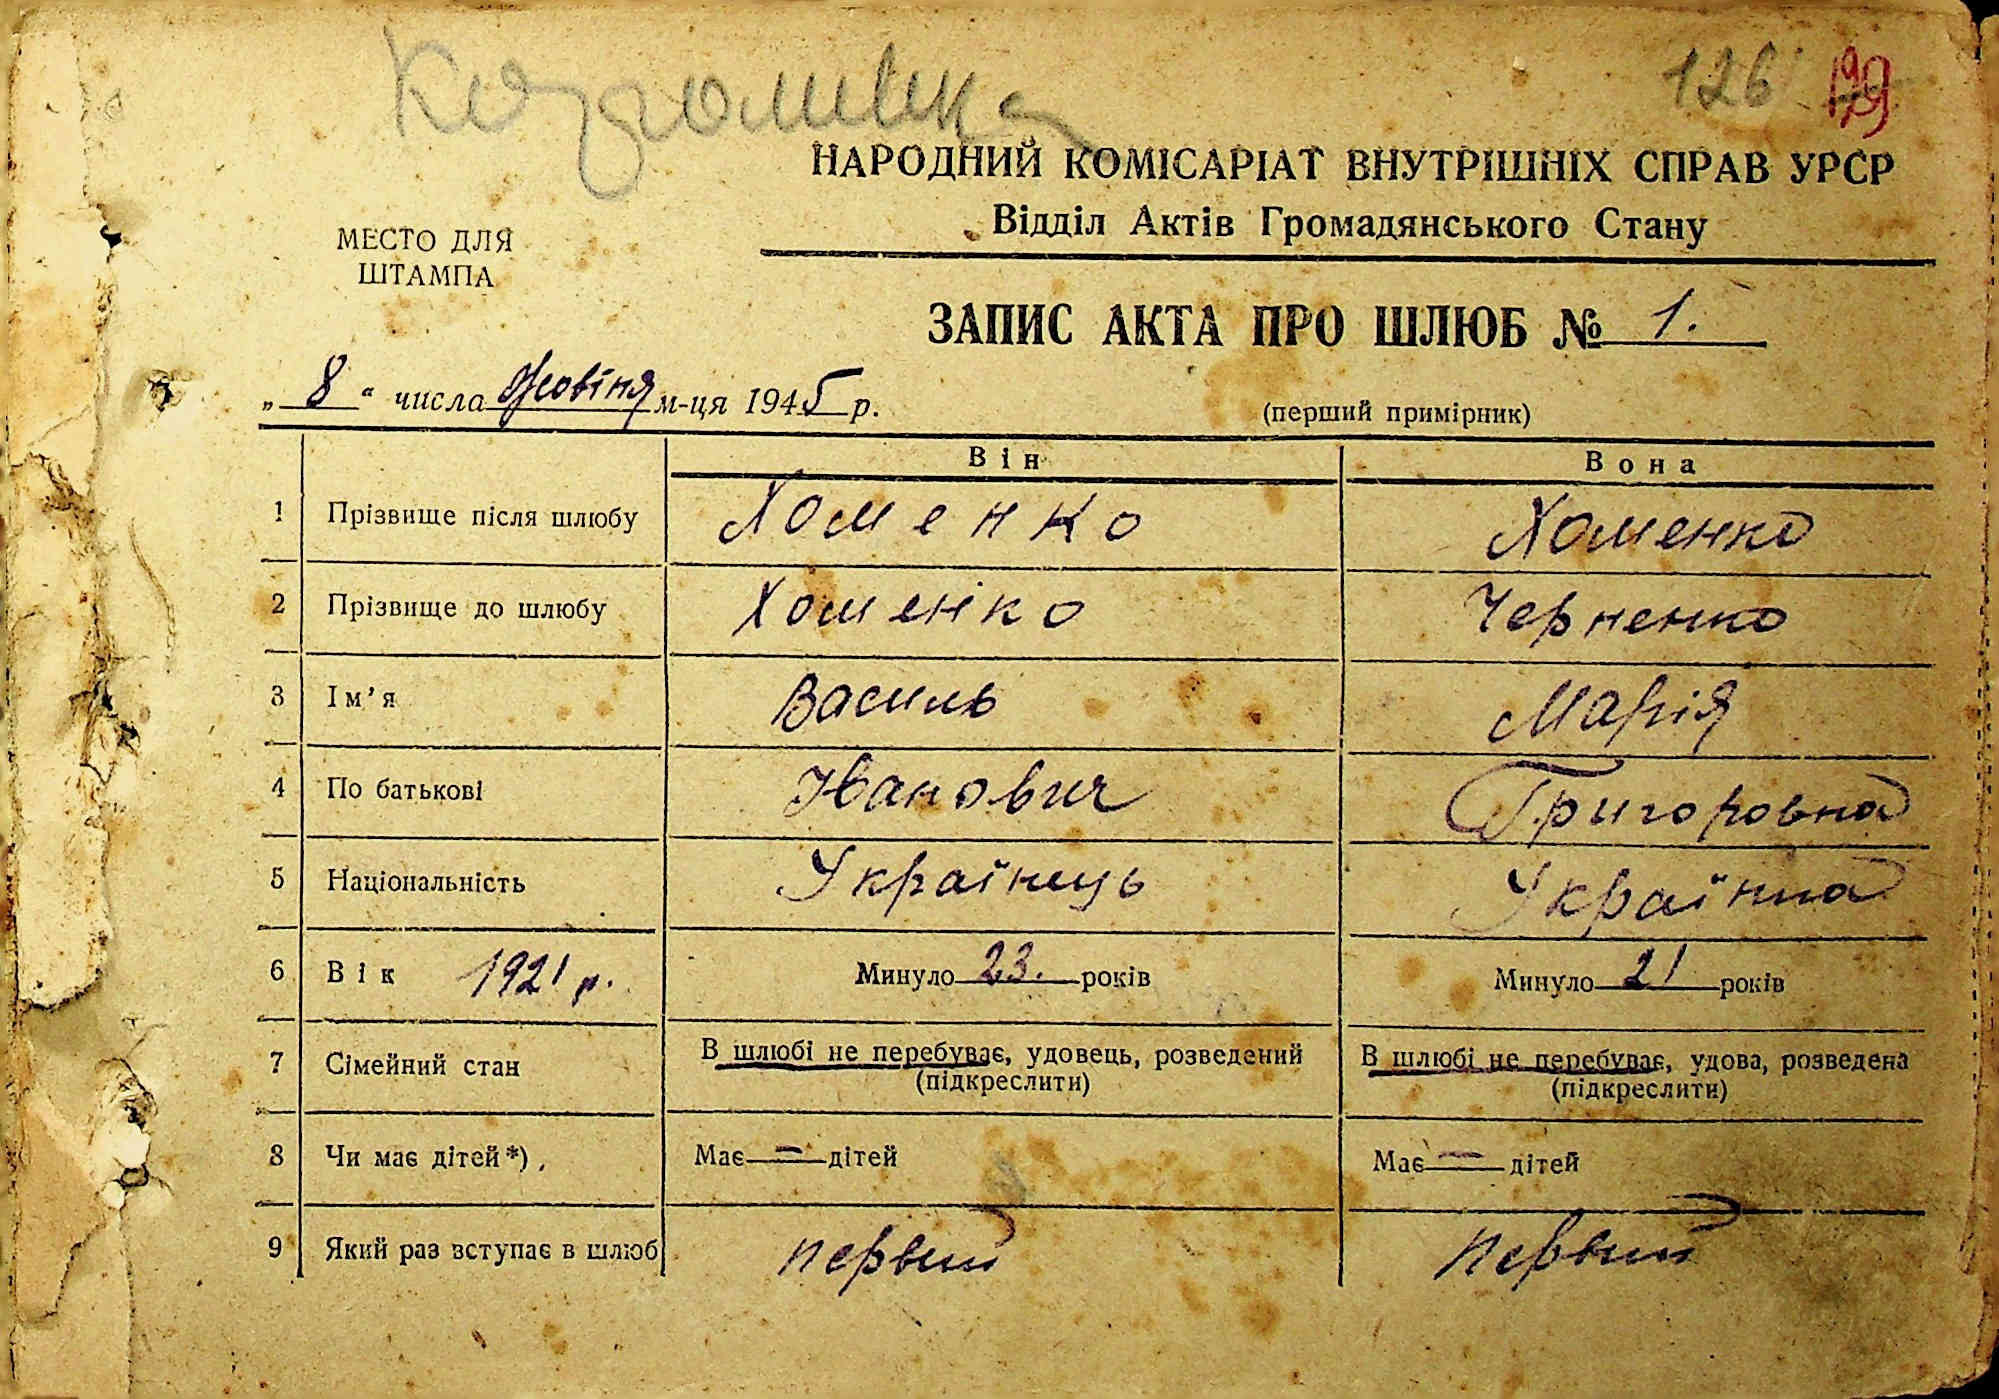 126 199
НАРОДНИЙ КОМІСАРІАТ ВНУТРІШНІХ СПРАВ УРСР
Відділ Актів Громадянського Стану
МЕСТО ДЛЯ
ШТАМПА
ЗАПИС АКТА ПРО ШЛЮБ № 1.
„ 8 “ числа Жовтня м-ця 1945 р.
(перший примірник)
Він Вона
1 Прізвище після шлюбу Хоменко Хоменко
2 Прізвище до шлюбу Хоменко Черненко
3 Ім’я Василь Марія
4 По батькові Іванович Григоровна
5 Національність Українець Українка
6 Вік 1921 р. Минуло 23. років Минуло 21 років
7 Сімейний стан В шлюбі не перебуває, удовець, розведений В шлюбі не перебуває, удова, розведена
(підкреслити) (підкреслити)
8 Чи має дітей*). Має — дітей Має — дітей
9 Який раз вступає в шлюб первый первый